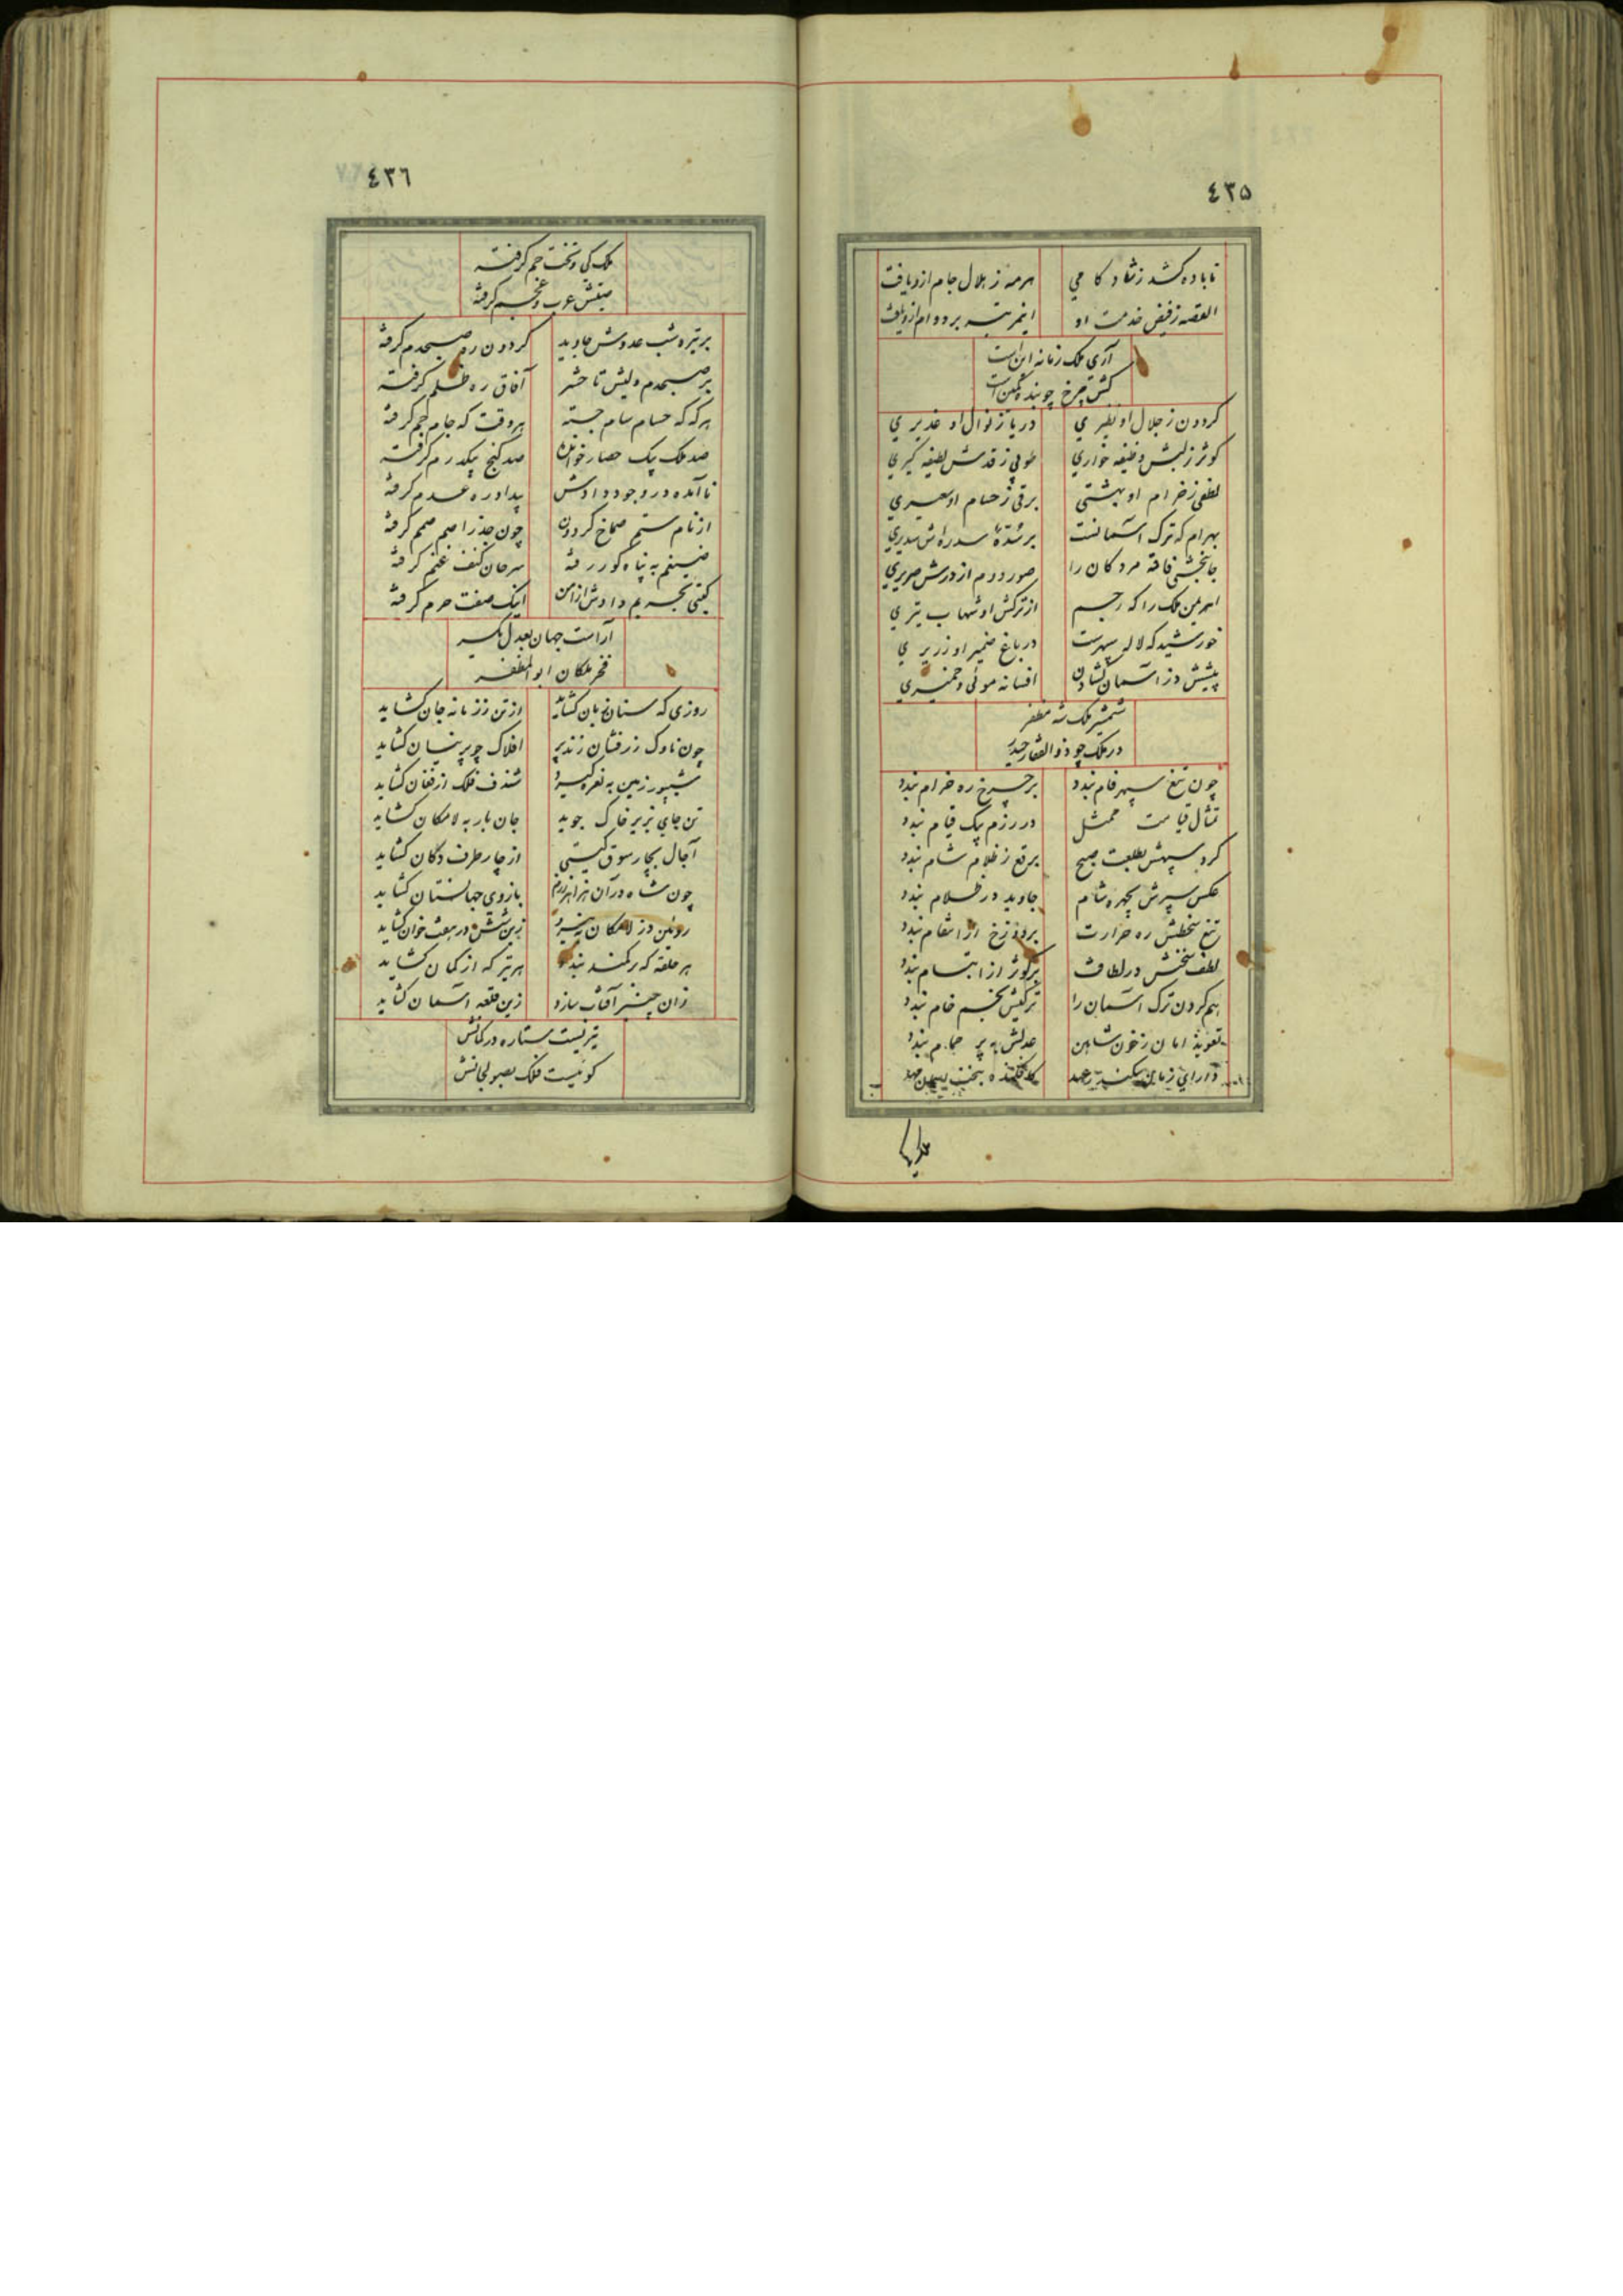 ٤٣٥
تا باده کشد ز شاد کامی
هر مه ز هلال جام ازو یافت
القصه ز فیض خدمت او
اینمرتبه بر دوام ازو یافت
آری ملک زمانه اینست
کش چرخ چو بنده کمین است
گردون ز جلال او نظیری
دریا ز نوال او غدیری
کوثر ز لبش وظیفه خواری
طوبی ز قدش لطیفه گیری
لطفی ز خرام او بهشتی
برقی ز حسام او سعیری
بهرام که ترک آسمانست
بر شدهٔ سدره اش سدیری
جانبخشی فاقه مردگان را
صور دوم از درش صریری
اهریمن ملک را که رجیم
از ترکش او شهاب تیری
خورشید که لاله سپهرست
در باغ ضمیر او زریری
پیشش دز آسمان گشادن
افسانه موئی و خمیری
شمشیر ملک شه مظفر
در ملک چو ذوالفقار حیدر
چون تیغ سپهر فام بندد
بر چرخ ره خرام بندد
تمثال قیامت ممثل
در رزم بیک قیام بندد
گرد سپهش بطلعت صبح
برقع ز ظلام شام بندد
عکس سپرش بچهره شام
جاوید در ظلام بندد
تیغ سخطش ره حرارت
بر دوزخ از انتقام بندد
لطف سخنش در لطافت
بر کوثر از ابتسام بندد
هم گردن ترک آسمان را
ترکیش بخم خام بندد
تعویذ امان ز خون شاهین
عدلش به پر حمام بندد
دارای زمان سکندر عهد
افکنده بتخت سلیمان مهد
٤٣٦
ملک کی و تخت جم گرفته
صیتش عرب و عجم گرفته
بر تیره شب عدوش جاوید
گردون ره صبحدم گرفته
بر صبحدم ولیش تا حشر
آفاق ره ظلم گرفته
هر که که حسام سام جسته
هر وقت که جام جم گرفته
صد ملک بیک حصار خوانده
صد گنج بیک درم گرفته
نا آمده در وجود دادش
بیداد ره عدم گرفته
از نام ستم صماخ گردون
چون جذر اصم صمم گرفته
ضیغم به پناه گور رفته
سرحان کنف غنم گرفته
گیتی بحریم دادش از امن
اینک صفت حرم گرفته
آراست جهان بعدل یکسر
فخر ملکان ابوالمظفر
روزی که سنان زبان گشاید
از تن در زمانه جان گشاید
چون ناوک زرفشان زند پر
افلاک چو پرنیان گشاید
شیپور زمین به نعره گیرد
شندف فلک از فغان گشاید
تن جای بزیر خاک جوید
جان بار به لامکان گشاید
آجال بچار سوق گیتی
از چار طرف دکان گشاید
چون شاه در آن هزاهز رزم
بازوی جهانستان گشاید
روئین دز لامکان پذیرد
زین شش در هفتخوان گشاید
هر حلقه که بر کمند بندد
هر تیر که از کمان گشاید
زان چنبر آفتاب سازد
زین قلعه آسمان گشاید
تیریست ستاره در کمانش
گوئیست فلک بصولجانش